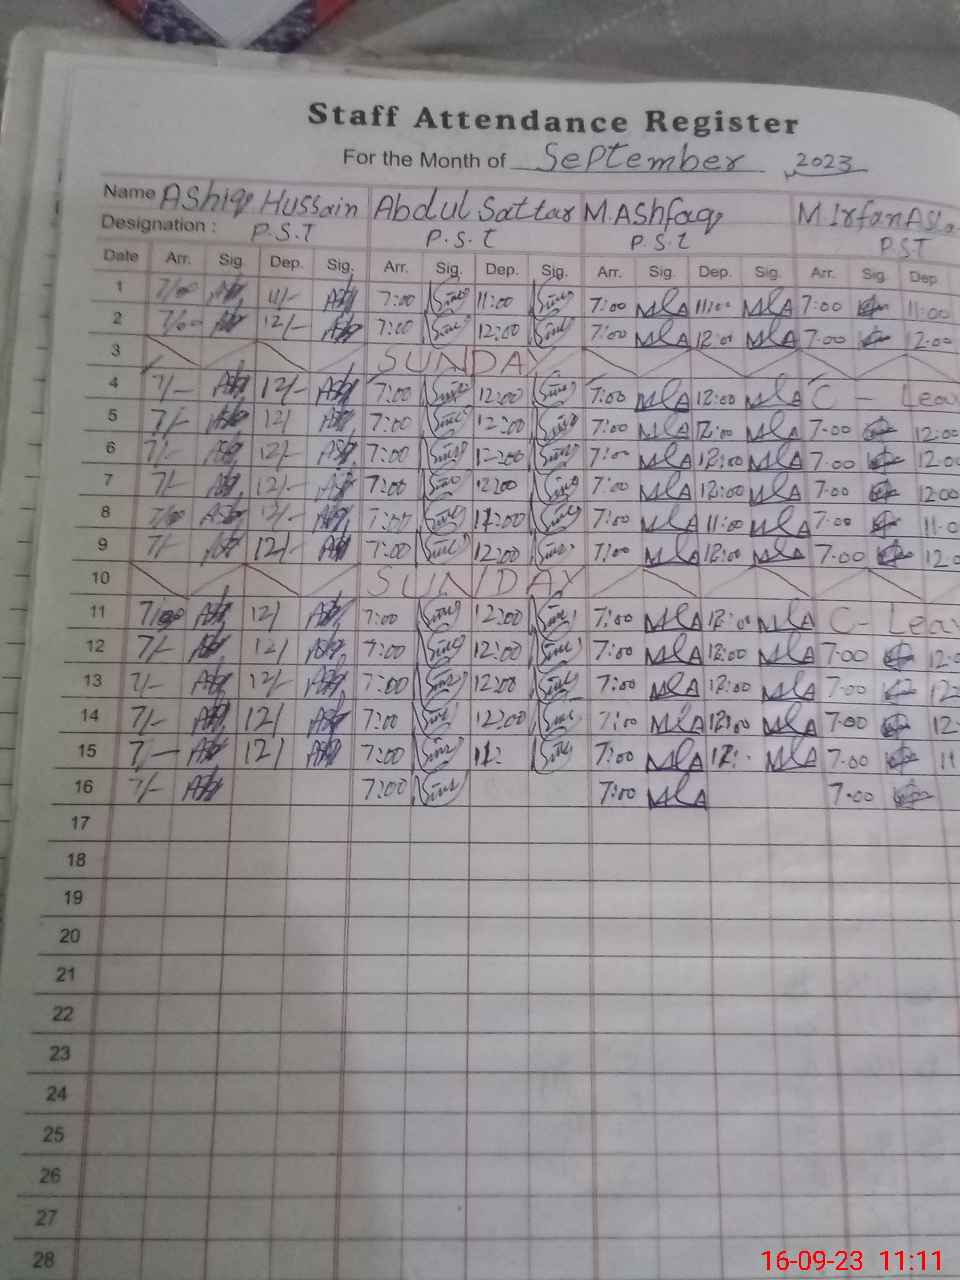 Staff Attendance Register
For the Month of September 2023
Name Ashiq Hussain Abdul Sattar M.Ashfaq M.Irfan
Designation : P.S.T P.S.T P.S.T P.S.T
Date Arr. Sig. Dep. Sig. Arr. Sig. Dep. Sig. Arr. Sig. Dep. Sig. Arr. Sig. Dep
1 7/00 11/- 7:00 11:00 7:00 11:00 7:00 11:00
2 7/00 12/- 7:00 12:00 7:00 12:00 7:00 12:00
3 SUNDAY
4 7/- 12/- 7:00 12:00 7:00 12:00 C - Leav
5 7/- 12/ 7:00 12:00 7:00 12:00 7:00 12:00
6 7/- 12/- 7:00 12:00 7:00 12:00 7:00 12:00
7 7/- 12/- 7:00 12:00 7:00 12:00 7:00 12:00
8 7/00 7:00 7:00 11:00 7:00 11:0
9 7/- 12/- 7:00 12:00 7:00 12:00 7:00 12:0
10 SUNDAY
11 7/00 12/ 7:00 12:00 7:00 12:00 C- Leav
12 7/- 12/ 7:00 12:00 7:00 12:00 7:00 12:0
13 7/- 12/- 7:00 12:00 7:00 12:00 7:00 12
14 7/- 12/ 7:00 12:00 7:00 12:00 7:00 12:
15 7/- 12/ 7:00 7:00 7:00 11
16 7/- 7:00 7:00 7:00
17
18
19
20
21
22
23
24
25
26
27
28
16-09-23 11:11